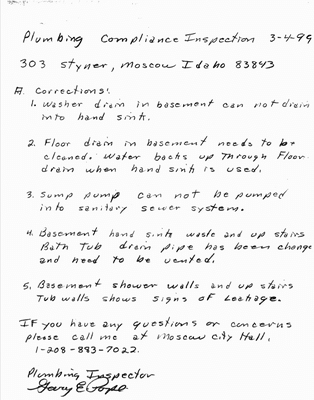 Plumbing Compliance Inspection 3-4-99
303 Styner, Moscow Idaho 83843
A. Corrections:
1. Washer drain in basement can not drain
into hand sink.
2. Floor drain in basement needs to be
cleaned. Water backs up through floor
drain when hand sink is used.
3. Sump pump can not be pumped
into sanitary sewer system.
4. Basement hand sink waste and up stairs
Bath Tub drain pipe has been change
and need to be vented.
5. Basement shower walls and up stairs
Tub walls shows signs of Leakage.
IF you have any questions or concerns
please call me at Moscow City Hall,
1-208-883-7022.
Plumbing Inspector
Gary E Pope